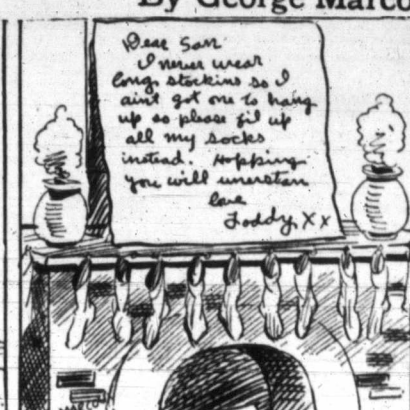 By George Marco
Dear San
I never wear
long stockins so I
aint got one to hang
up so please fil up
all my socks
instead. Hopping
you will unerstan
love
Toddy. X x